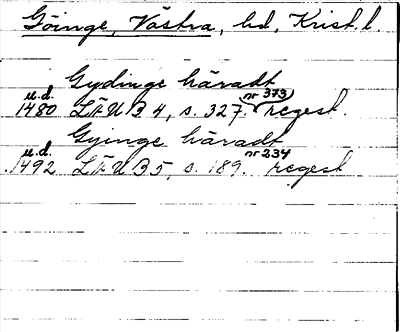 Göinge, Västra, hd, Krist. l.
Gydinge häradt
u.d. nr 373
1480 LÄU B 4, s. 327. regest.
Gyinge häradt
u.d. nr 234
1492 LÄU B 5, s. 189. regest